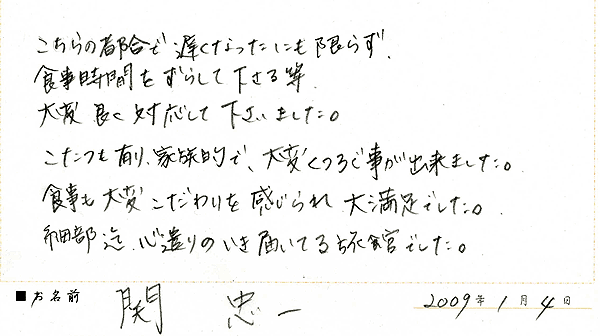 こちらの都合で遅くなったにも限らず、
食事時間をずらして下さる等
大変良く対応して下さいました。
こたつも有り、家族的で、大変くつろぐ事が出来ました。
食事も大変こだわりを感じられ大満足でした。
細部迄心遣りのいき届いてる旅館でした。
■お名前 関 忠一 2009年1月4日